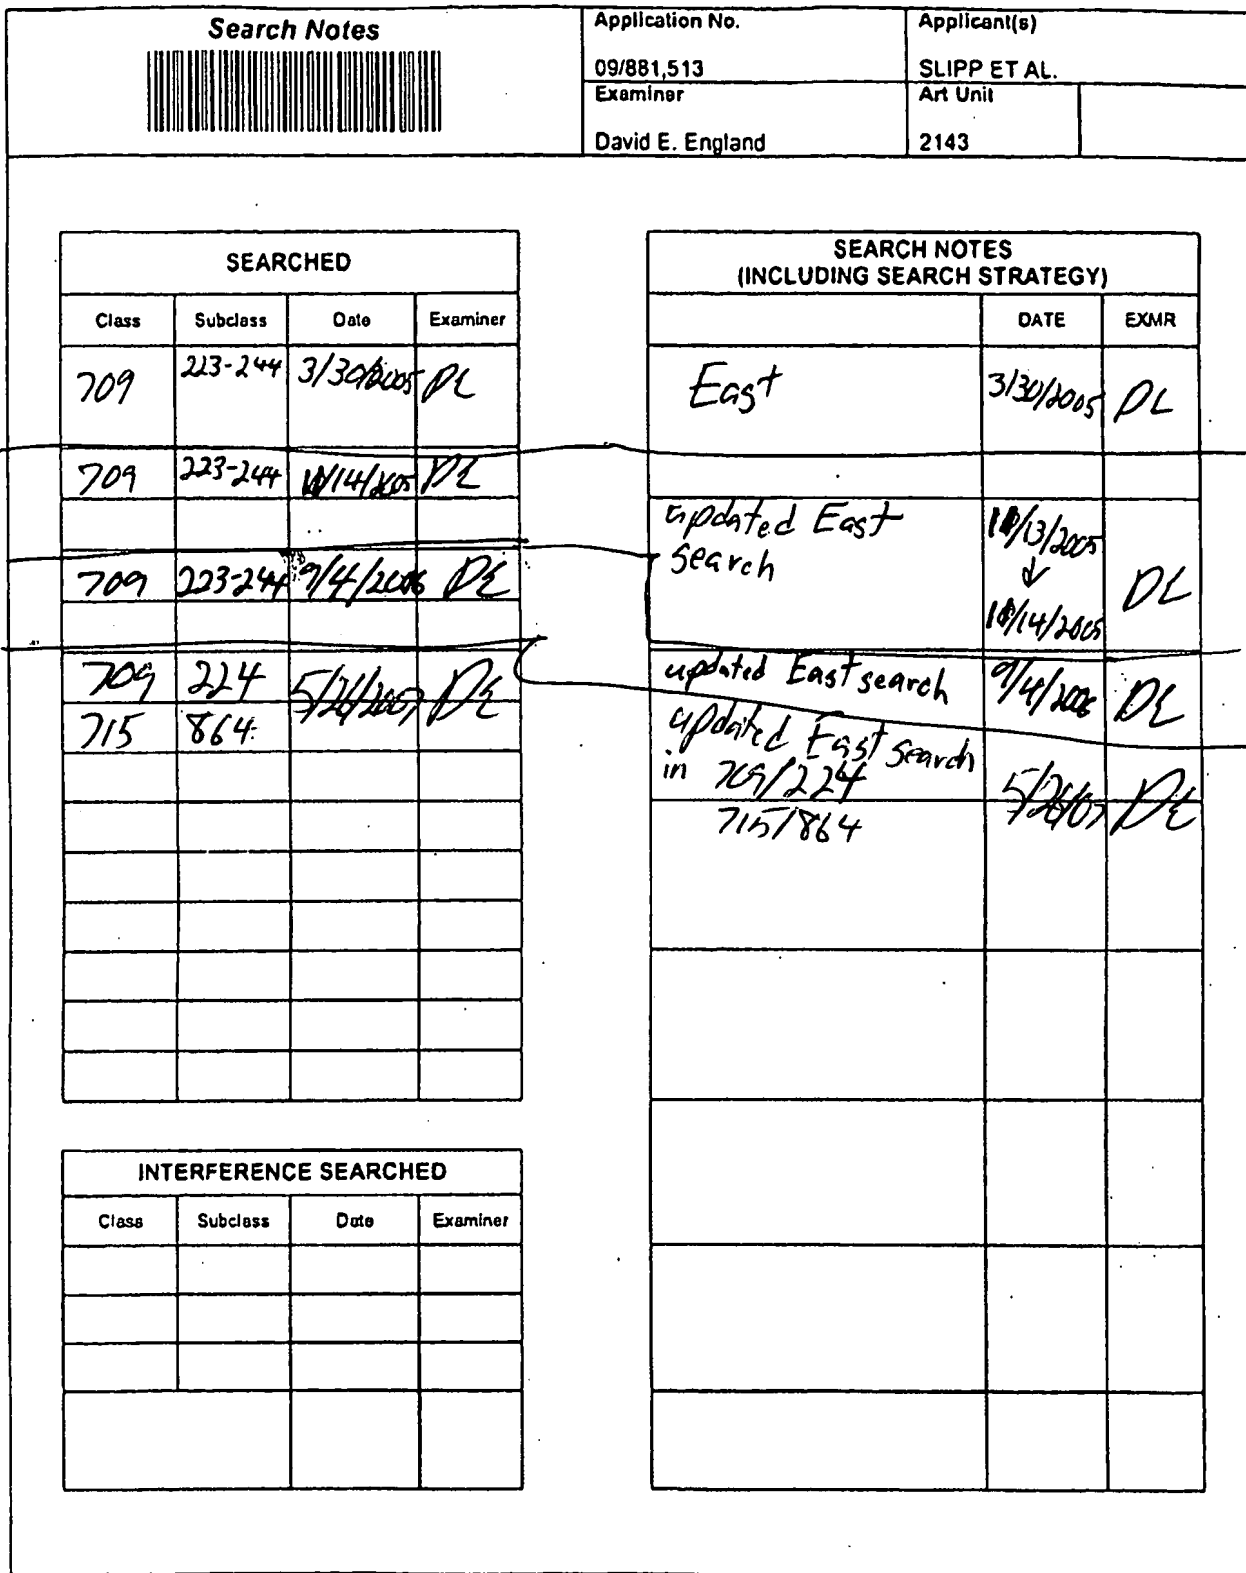 Search Notes
Application No.
Applicant(s)
09/881,513
SLIPP ET AL.
Examiner
Art Unit
David E. England
2143
SEARCHED
Class Subclass Date Examiner
709 223-244 3/30/2005 DE
709 223-244 /14/2005 DE
709 223-244 9/4/2006 DE
709 224 5/26/2007 DE
715 864
INTERFERENCE SEARCHED
Class Subclass Date Examiner
SEARCH NOTES
(INCLUDING SEARCH STRATEGY)
DATE EXMR
East 3/30/2005 DE
updated East
search
/13/2005
/14/2005
DE
updated East search 9/4/2006 DE
updated East search
in 709/224 5/26/07 DE
715/864